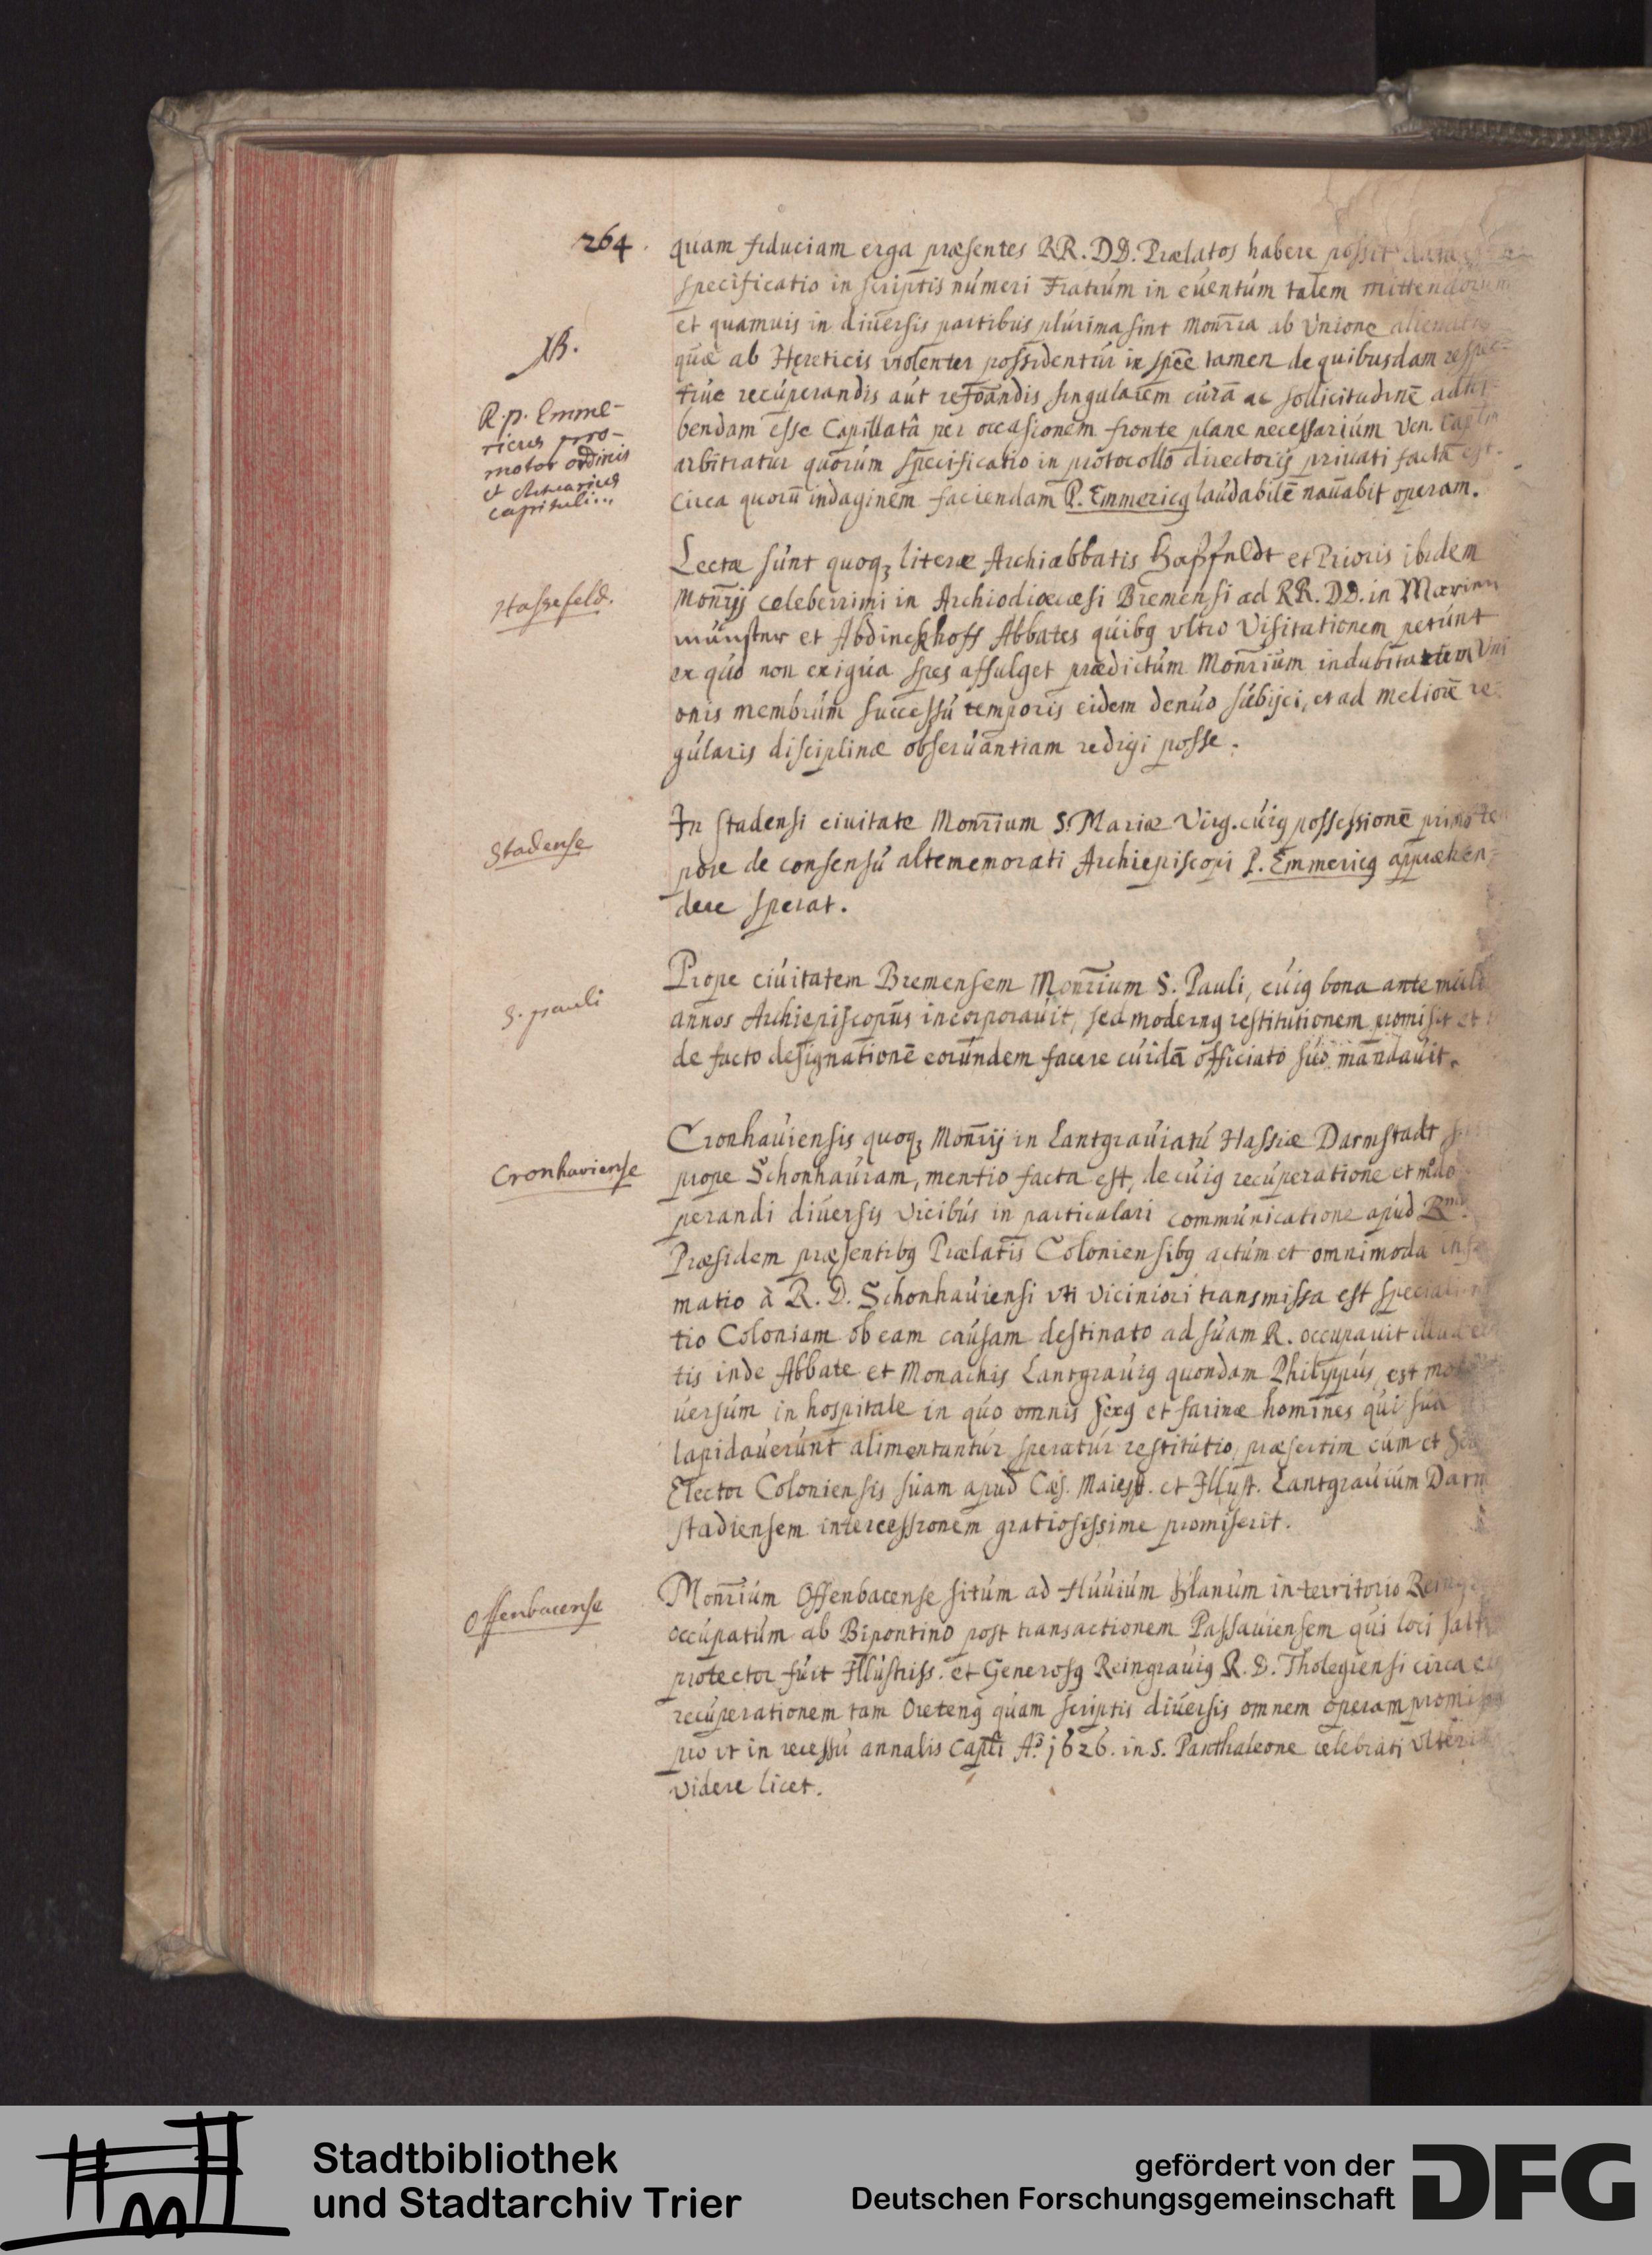 264.
quam fiduciam erga præsentes RR. DD. Prælatos habere possit data
specificatio in scriptis numeri Fratrum in euentum talem mittendorum
et quamuis in diuersis partibus plurima sint Monria ab Vnione alienata
NB.
quæ ab Hereticis violenter possidentur in spēe tamen de quibusdam respec-
tiue recuperandis aut refoandis singularem curā ac sollicitudinē adhi-
R. p. Emme-
bendam esse Capillatâ per occasionem fronte plane necessarium Ven. Captm
ricus pro-
motor ordinis
arbitratur quorum specificatio in protocollo directorij priuati facta est.
et Actuarius
capituli...
Circa quorū indaginem faciendam P. Emmericg laudabilē nauabit operam.
Lectæ sunt quoq; literæ Archiabbatis Haßfeldt et Prioris ibidem
Hassefeld.
Monrij celeberrimi in Archiodiœcesi Bremensi ad RR. DD. in Marien
münster et Abdinckhoff Abbates quibg vltro Visitationem petunt
ex quo non exigua spes affulget prædictum Monrium indubitatem Vni
onis membrum successu temporis eidem denuo subijci, et ad meliorē re-
gularis disciplinæ obseruantiam redigi posse.
In stadensi ciuitate Monrium S. Mariæ Virg. cuig possessionē primo te
Stadense
pore de consensu altememorati Archiepiscopi P. Emmericg appræhen-
dere sperat.
Prope ciuitatem Bremensem Monrium S. Pauli, cuig bona ante mult
S. pauli
annos Archiepiscopus incorporauit, sed moderng restitutionem promisit et
de facto designationē eorundem facere cuidā officiato suo mandauit.
Cronhauiensis quoq; Monrij in Lantgrauiatu Hassiæ Darmstadt
Cronhaviense
prope Schonhauiam, mentio facta est, de cuig recuperatione et modo
perandi diuersis vicibus in particulari communicatione apud Rmd.
Præsidem præsentibg Prælatis Coloniensibg actum et omnimoda infor
matio à R. D. Schonhauiensi vti viciniori transmissa est speciali
tio Coloniam ob eam causam destinato ad suam R. occupauit illud
tis inde Abbate et Monachis Lantgrauig quondam Philippus, est
uersum in hospitale in quo omnis sexg et farinæ homines qui sua
lapidauerunt alimentantur speratur restitutio, præsertim cum et
Elector Coloniensis suam apud Cæs. Maiest. et Illust. Lantgrauium Darm
stadiensem intercessionem gratiosissime promiserit.
Monrium Offenbacense situm ad Fluuium Glanum in territorio
Offenbacense
occupatum ab Bipontino post transactionem Passauiensem qui loci
protector fuit Illustriss. et Generosg Reingrauig R. D. Tholegiensi circa
recuperationem tam Oreteng quam scriptis diuersis omnem operam
pro vt in recessu annalis Capli Ao 1626. in S. Panthaleone celebrati
videre licet.
Stadtbibliothek
und Stadtarchiv Trier
gefördert von der
Deutschen Forschungsgemeinschaft
DFG